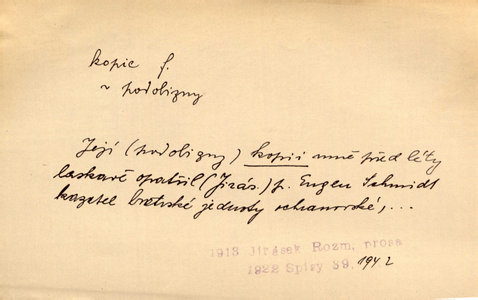 kopie f.
~ podobizny
Její (podobizny) kopii mně před léty
laskavě opatřil (Jirás.) p. Eugen Schmidt
kazatel bratrské jednoty ochranovské, ...
1913 Jirásek Rozm. prosa
1922 Spisy 39. 1942